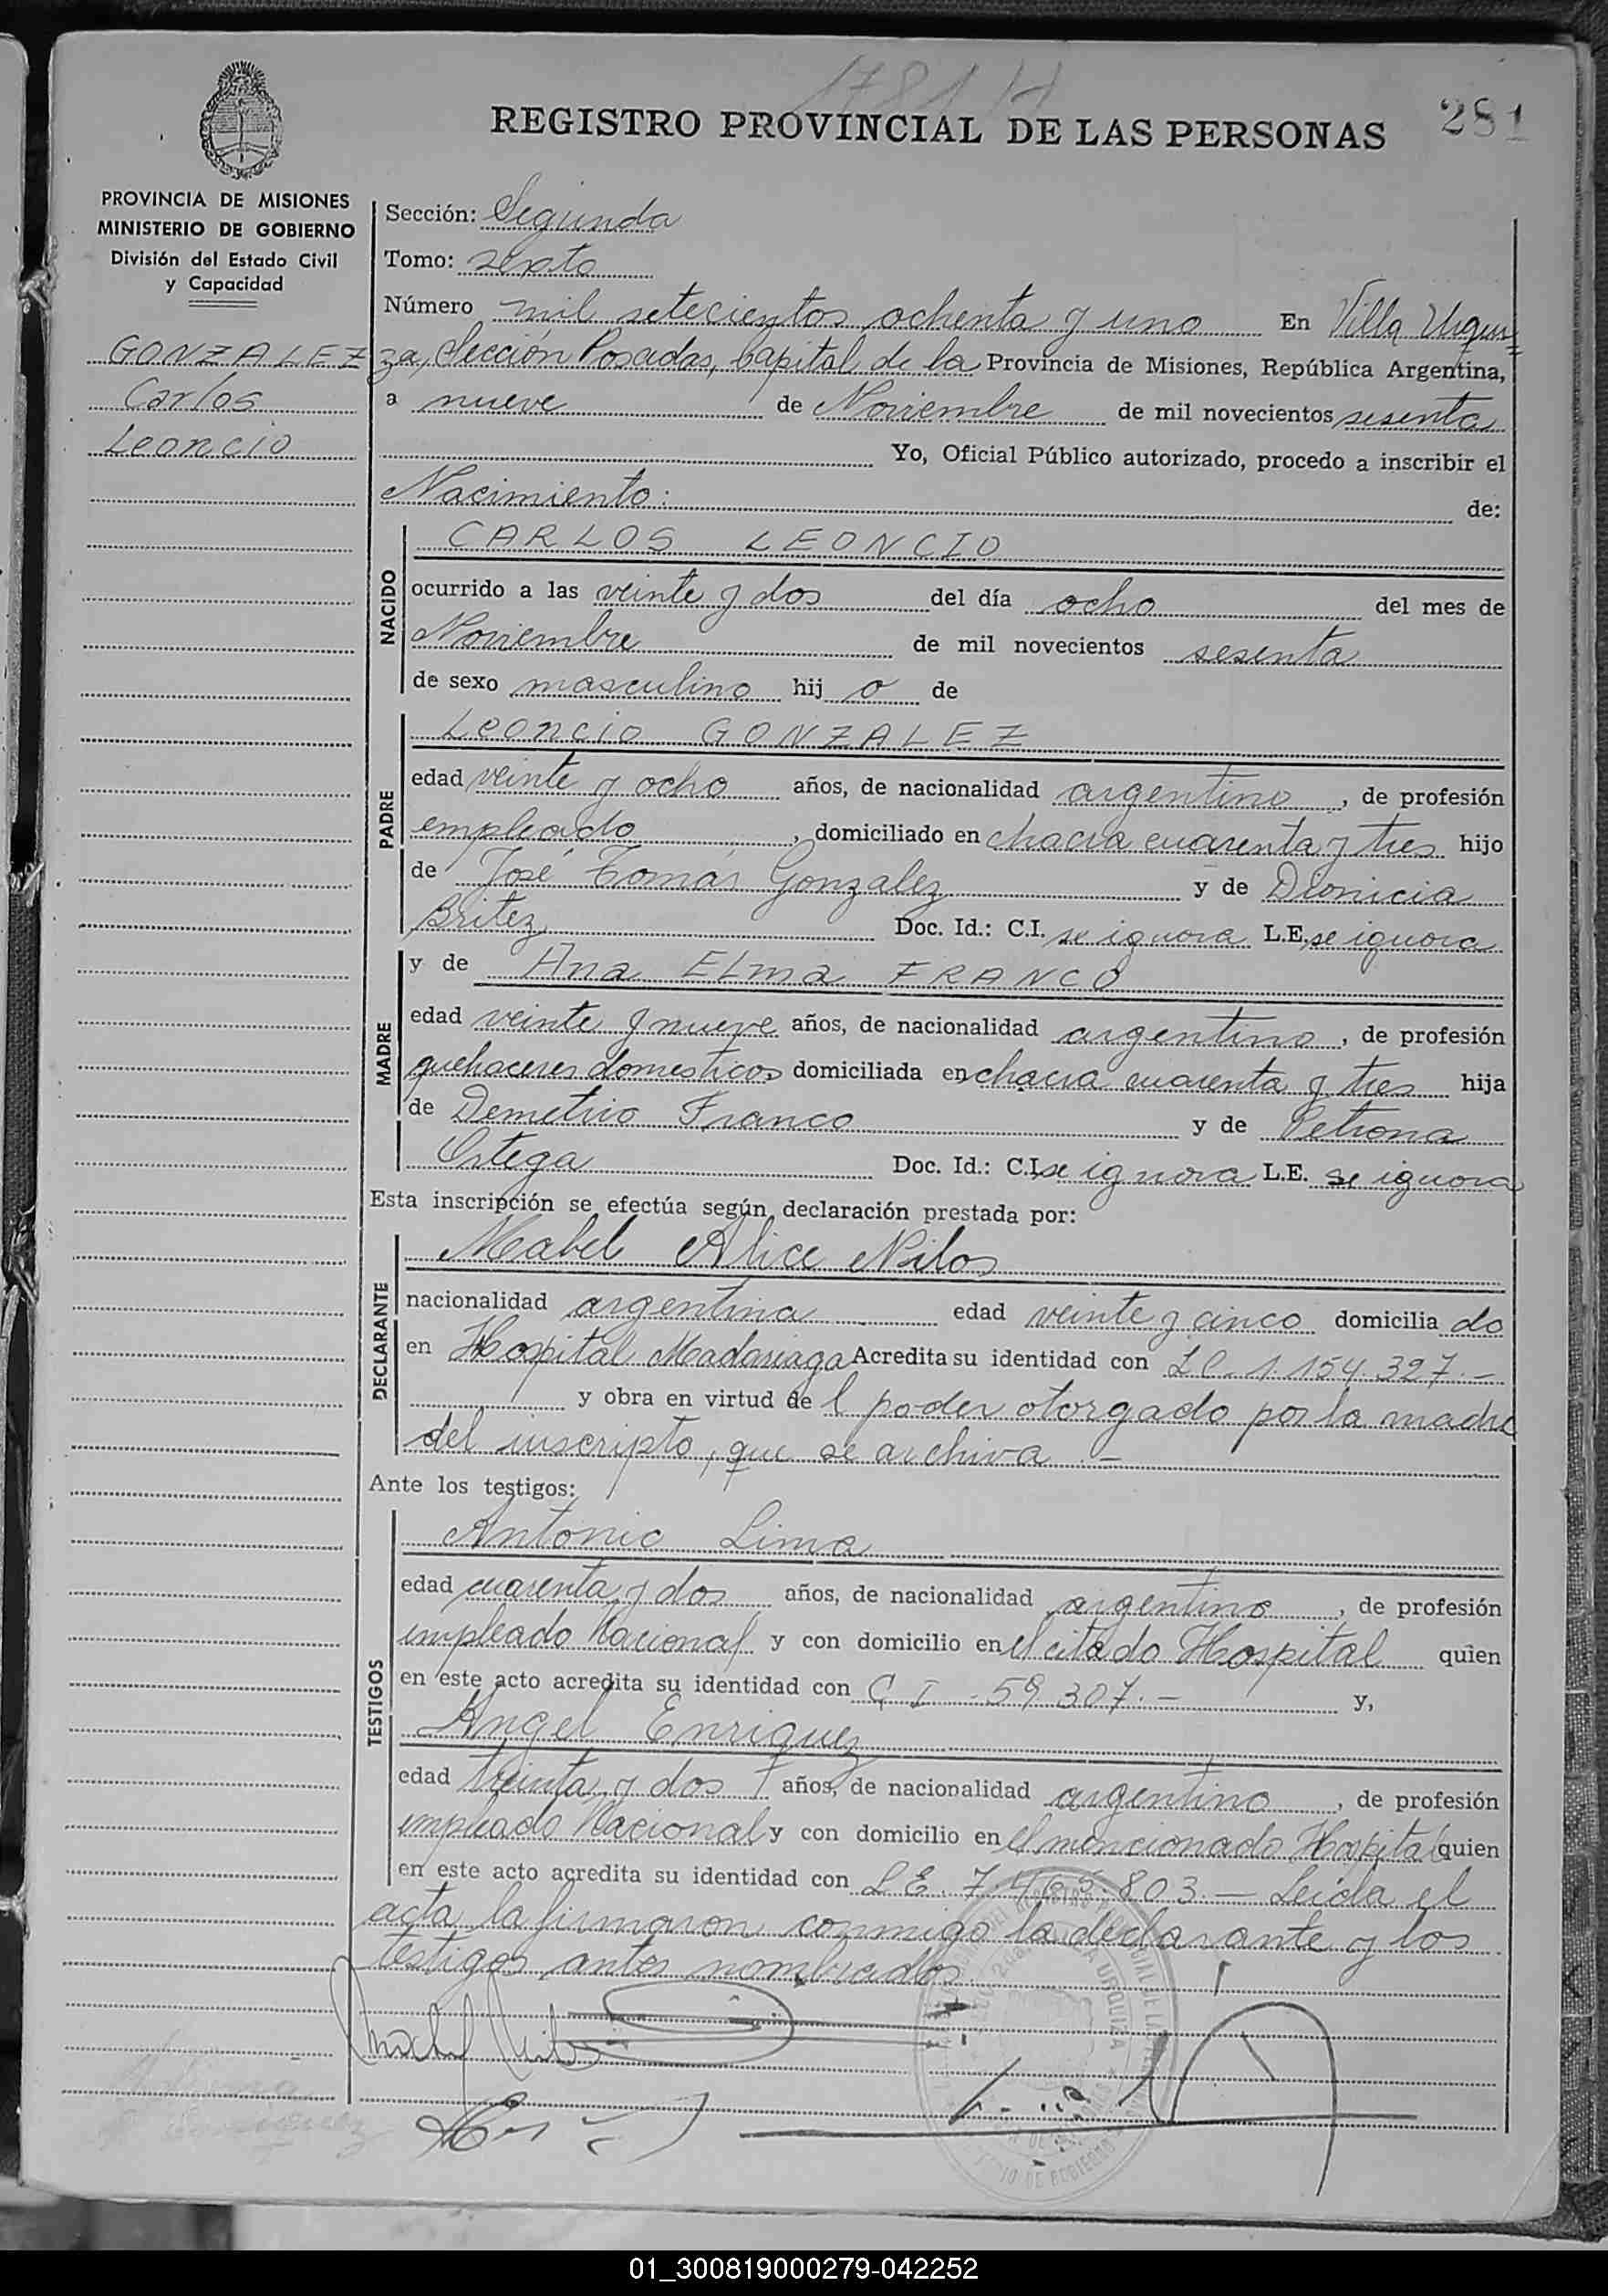 1781 H
REGISTRO PROVINCIAL DE LAS PERSONAS
281
PROVINCIA DE MISIONES
MINISTERIO DE GOBIERNO
División del Estado Civil
y Capacidad
GONZALEZ
Carlos
Leoncio
Sección: Segunda
Tomo: sexto
Número mil setecientos ochenta y uno En Villa Urqui=
za, Sección Posadas, Capital de la Provincia de Misiones, República Argentina,
a nueve de Noviembre de mil novecientos sesenta
Yo, Oficial Público autorizado, procedo a inscribir el
Nacimiento: de:
NACIDO
CARLOS LEONCIO
ocurrido a las veinte y dos del día ocho del mes de
Noviembre de mil novecientos sesenta
de sexo masculino hij o de
PADRE
Leoncio GONZALEZ
edad veinte y ocho años, de nacionalidad argentino, de profesión
empleado, domiciliado en chacra cuarenta y tres hijo
de José Tomás Gonzalez y de Dionicia
Britez Doc. Id.: C.I. se ignora L.E. se ignora
MADRE
y de Ana ELma FRANCO
edad veinte y nueve años, de nacionalidad argentina, de profesión
quehaceres domesticos domiciliada en chacra cuarenta y tres hija
de Demetrio Franco y de Petrona
Ortega Doc. Id.: C.I. se ignora L.E. se ignora
Esta inscripción se efectúa según declaración prestada por:
DECLARANTE
Mabel Alice Nilos
nacionalidad argentina edad veinte y cinco domicilia do
en Hospital Madariaga Acredita su identidad con L.C. 1.154.327.-
y obra en virtud de l poder otorgado por la madre
del inscripto, que se archiva.-
Ante los testigos:
TESTIGOS
Antonio Lima
edad cuarenta y dos años, de nacionalidad argentino, de profesión
empleado Nacional y con domicilio en el citado Hospital quien
en este acto acredita su identidad con C I - 59 307.- y,
Angel Enriquez
edad treinta y dos años, de nacionalidad argentino, de profesión
empleado Nacional y con domicilio en el mencionado Hospital quien
en este acto acredita su identidad con L E. 803.- Leida el
acta la firmaron conmigo la declarante y los
testigos antes nombrados.
01_300819000279-042252